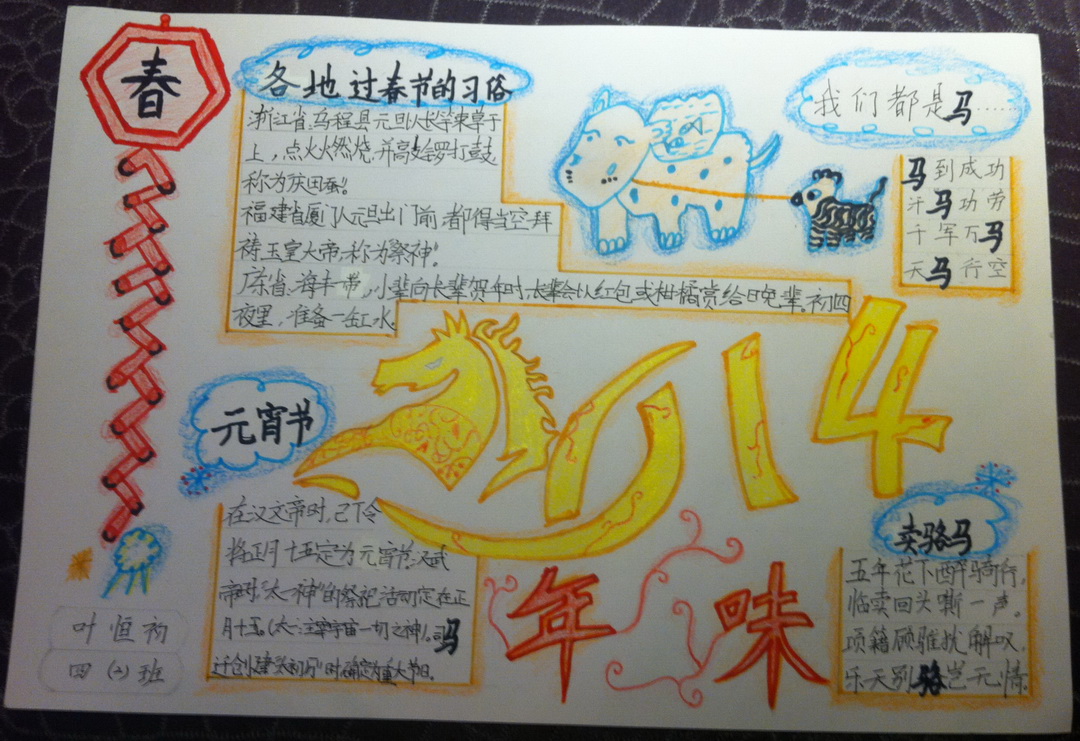 春
各地过春节的习俗
浙江省:乌程县元旦以长竿束草于
上,点火燃烧,并高敲锣打鼓
称为“庆田蚕”。
福建省厦门人元旦出门前都得当空拜
祷玉皇大帝,称为祭神。
广东省:海丰一带,小辈向长辈贺年时,长辈会以红包或柑橘赏给晚辈。初四
夜里,准备一缸水
我们都是马......
马到成功
汗马功劳
千军万马
天马行空
2014
元宵节
在汉文帝时,已下令
将正月十五定为元宵节。汉武
帝时,“太一神”的祭祀活动定在正
月十五。(太一:主宰宇宙一切之神)。司马
迁创建“太初历”时确定为重大节日。
年味
卖骆马
五年花下醉骑行,
临卖回头嘶一声。
项籍顾骓犹解叹,
乐天别骆岂无情。
叶恒
四(2)班